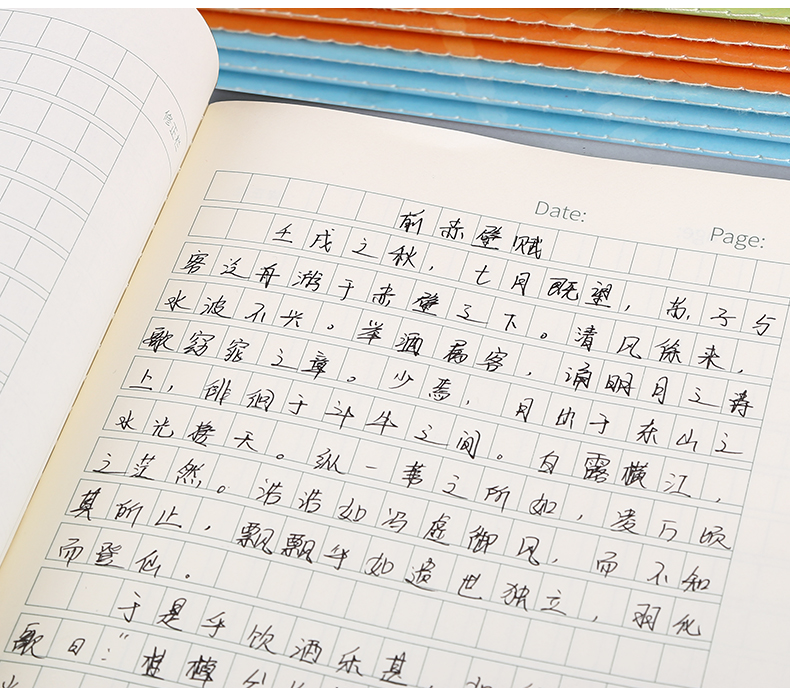 Date:
Page:
前赤壁赋
壬戌之秋，七月既望，苏子与
客泛舟游于赤壁之下。清风徐来，
水波不兴。举酒属客，诵明月之诗
歌窈窕之章。少焉，月出于东山之
上，徘徊于斗牛之间。白露横江，
水光接天。纵一苇之所如，凌万顷
之茫然。浩浩如冯虚御风，而不知
其所止，飘飘乎如遗世独立，羽化
而登仙。
于是乎饮酒乐甚，
歌曰：“桂棹兮